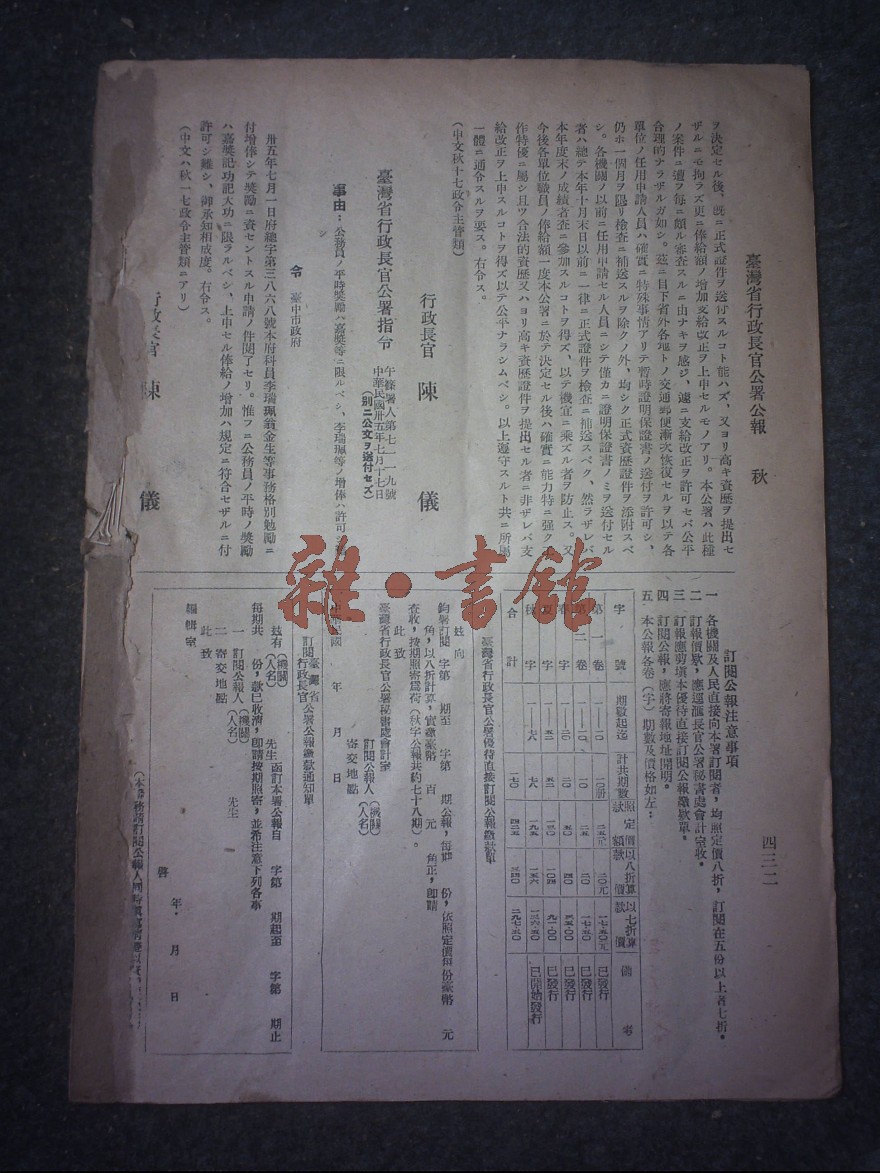 臺灣省行政長官公署公報　秋　四三二
ヲ決定セル後、既ニ正式證件ヲ送付スルコト能ハズ、又ヨリ高キ資歷ヲ提出セ
ザルニモ拘ラズ更ニ俸給額ノ增加支給改正ヲ上申セルモノアリ。本公署ハ此種
ノ案件ニ遭フ每ニ頗ル審査スルニ由ナキヲ感ジ、遽ニ支給改正ヲ許可セバ公平
合理的ナラザルガ如シ。茲ニ目下省外各地トノ交通郵便漸次恢復セルヲ以テ各
單位ノ任用申請人員ハ確實ニ特殊事情アリテ暫時證明保證書ノ送付ヲ許可シ、
仍ホ一個月ヲ限リ檢査ニ補送スルヲ除クノ外、均シク正式資歷證件ヲ添附スベ
シ。各機關ノ以前ニ任用申請セル人員ニシテ僅カニ證明保證書ノミヲ送付セル
者ハ總テ本年十月末日以前ニ一律ニ正式證件ヲ檢査ニ補送スベク、然ラザレバ
本年度末ノ成績考査ニ參加スルコトヲ得ズ、以テ機宜ニ乘ズル者ヲ防止ス。又
今後各單位職員ノ俸給額一度本公署ニ於テ決定セル後ハ確實ニ能力特ニ强ク工
作特優ニ屬シ且ツ合法的資歷又ハヨリ高キ資歷證件ヲ提出セル者ニ非ザレバ支
給改正ヲ上申スルコトヲ得ズ以テ公平ナラシムベシ。以上遵守スルト共ニ所屬
一體ニ通令スルヲ要ス。右令ス。
(中文秋十七政令主管類)
行政長官　陳　儀
臺灣省行政長官公署指令
中華民國卅五年七月十七日
(別ニ公文ヲ送付セズ)
事由：公務員ノ平時獎勵ハ嘉獎等ニ限ルベシ、李瑞珮等ノ增俸ハ許可
令　臺中市政府
卅五年七月一日府總字第三八六八號本府科員李瑞珮翁金生等事務格別勉勵ニ
付增俸シテ獎勵ニ資セントスル申請ノ件閱了セリ。惟フニ公務員ノ平時ノ獎勵
ハ嘉獎記功記大功ニ限ラルベシ、上申セル俸給ノ增加ハ規定ニ符合セザルニ付
許可シ難シ、御承知相成度。右令ス。
(中文ハ秋一七政令主管類ニアリ)
行政長官　陳　儀
訂閱公報注意事項
一　各機關及人民直接向本署訂閱者，均照定價八折，訂閱在五份以上者七折。
二　訂報價欵，應逕滙長官公署秘書處會計室收。
三　訂報應剪塡本優待直接訂閱公報繳欵單。
四　訂閱公報，應將寄報地址開明。
五　本公報各卷(字)期數及價格如左：
字號　期數起迄　計共期數　照定價欵額　以八折算欵價　以七折算欵價　備考
第一卷　一—一〇　一〇期　二五元　二〇元　一七·五〇元　已發行
第二卷　一—一〇　一〇　二五　二〇　一七·五〇　已發行
春字　一—二〇　二〇　五〇　四〇　三五·〇〇　已發行
夏字　一—五二　五二　一三〇　一〇四　九一·〇〇　已發行
秋字　一—七八　七八　一九五　一五六　一三六·五〇　已開始發行
合計　一七〇　四二五　三四〇　二九七·五〇
臺灣省行政長官公署優待直接訂閱公報繳欵單
茲向
鈞署訂閱　字第　期至　字第　期公報，每期　份，依照定價每份臺幣　元
角，以八折計算，實繳臺幣　百　元　角正，卽請
查收，按期照寄爲荷(秋字公報共約七十八期)。
此致
臺灣省行政長官公署秘書處會計室
訂閱公報人(機關)(人名)
寄交地點
中華民國　年　月　日
訂閱臺灣省行政長官公署公報繳欵通知單
茲有(機關)(人名)　先生函訂本署公報自　字第　期起至　字第　期止
每期共　份，欵已收濟，卽請按期照寄，並希注意下列各事
一　訂閱公報人(機關)(人名)　先生
二　寄交地點
此致
編輯室
啓　年　月　日
雜·書館